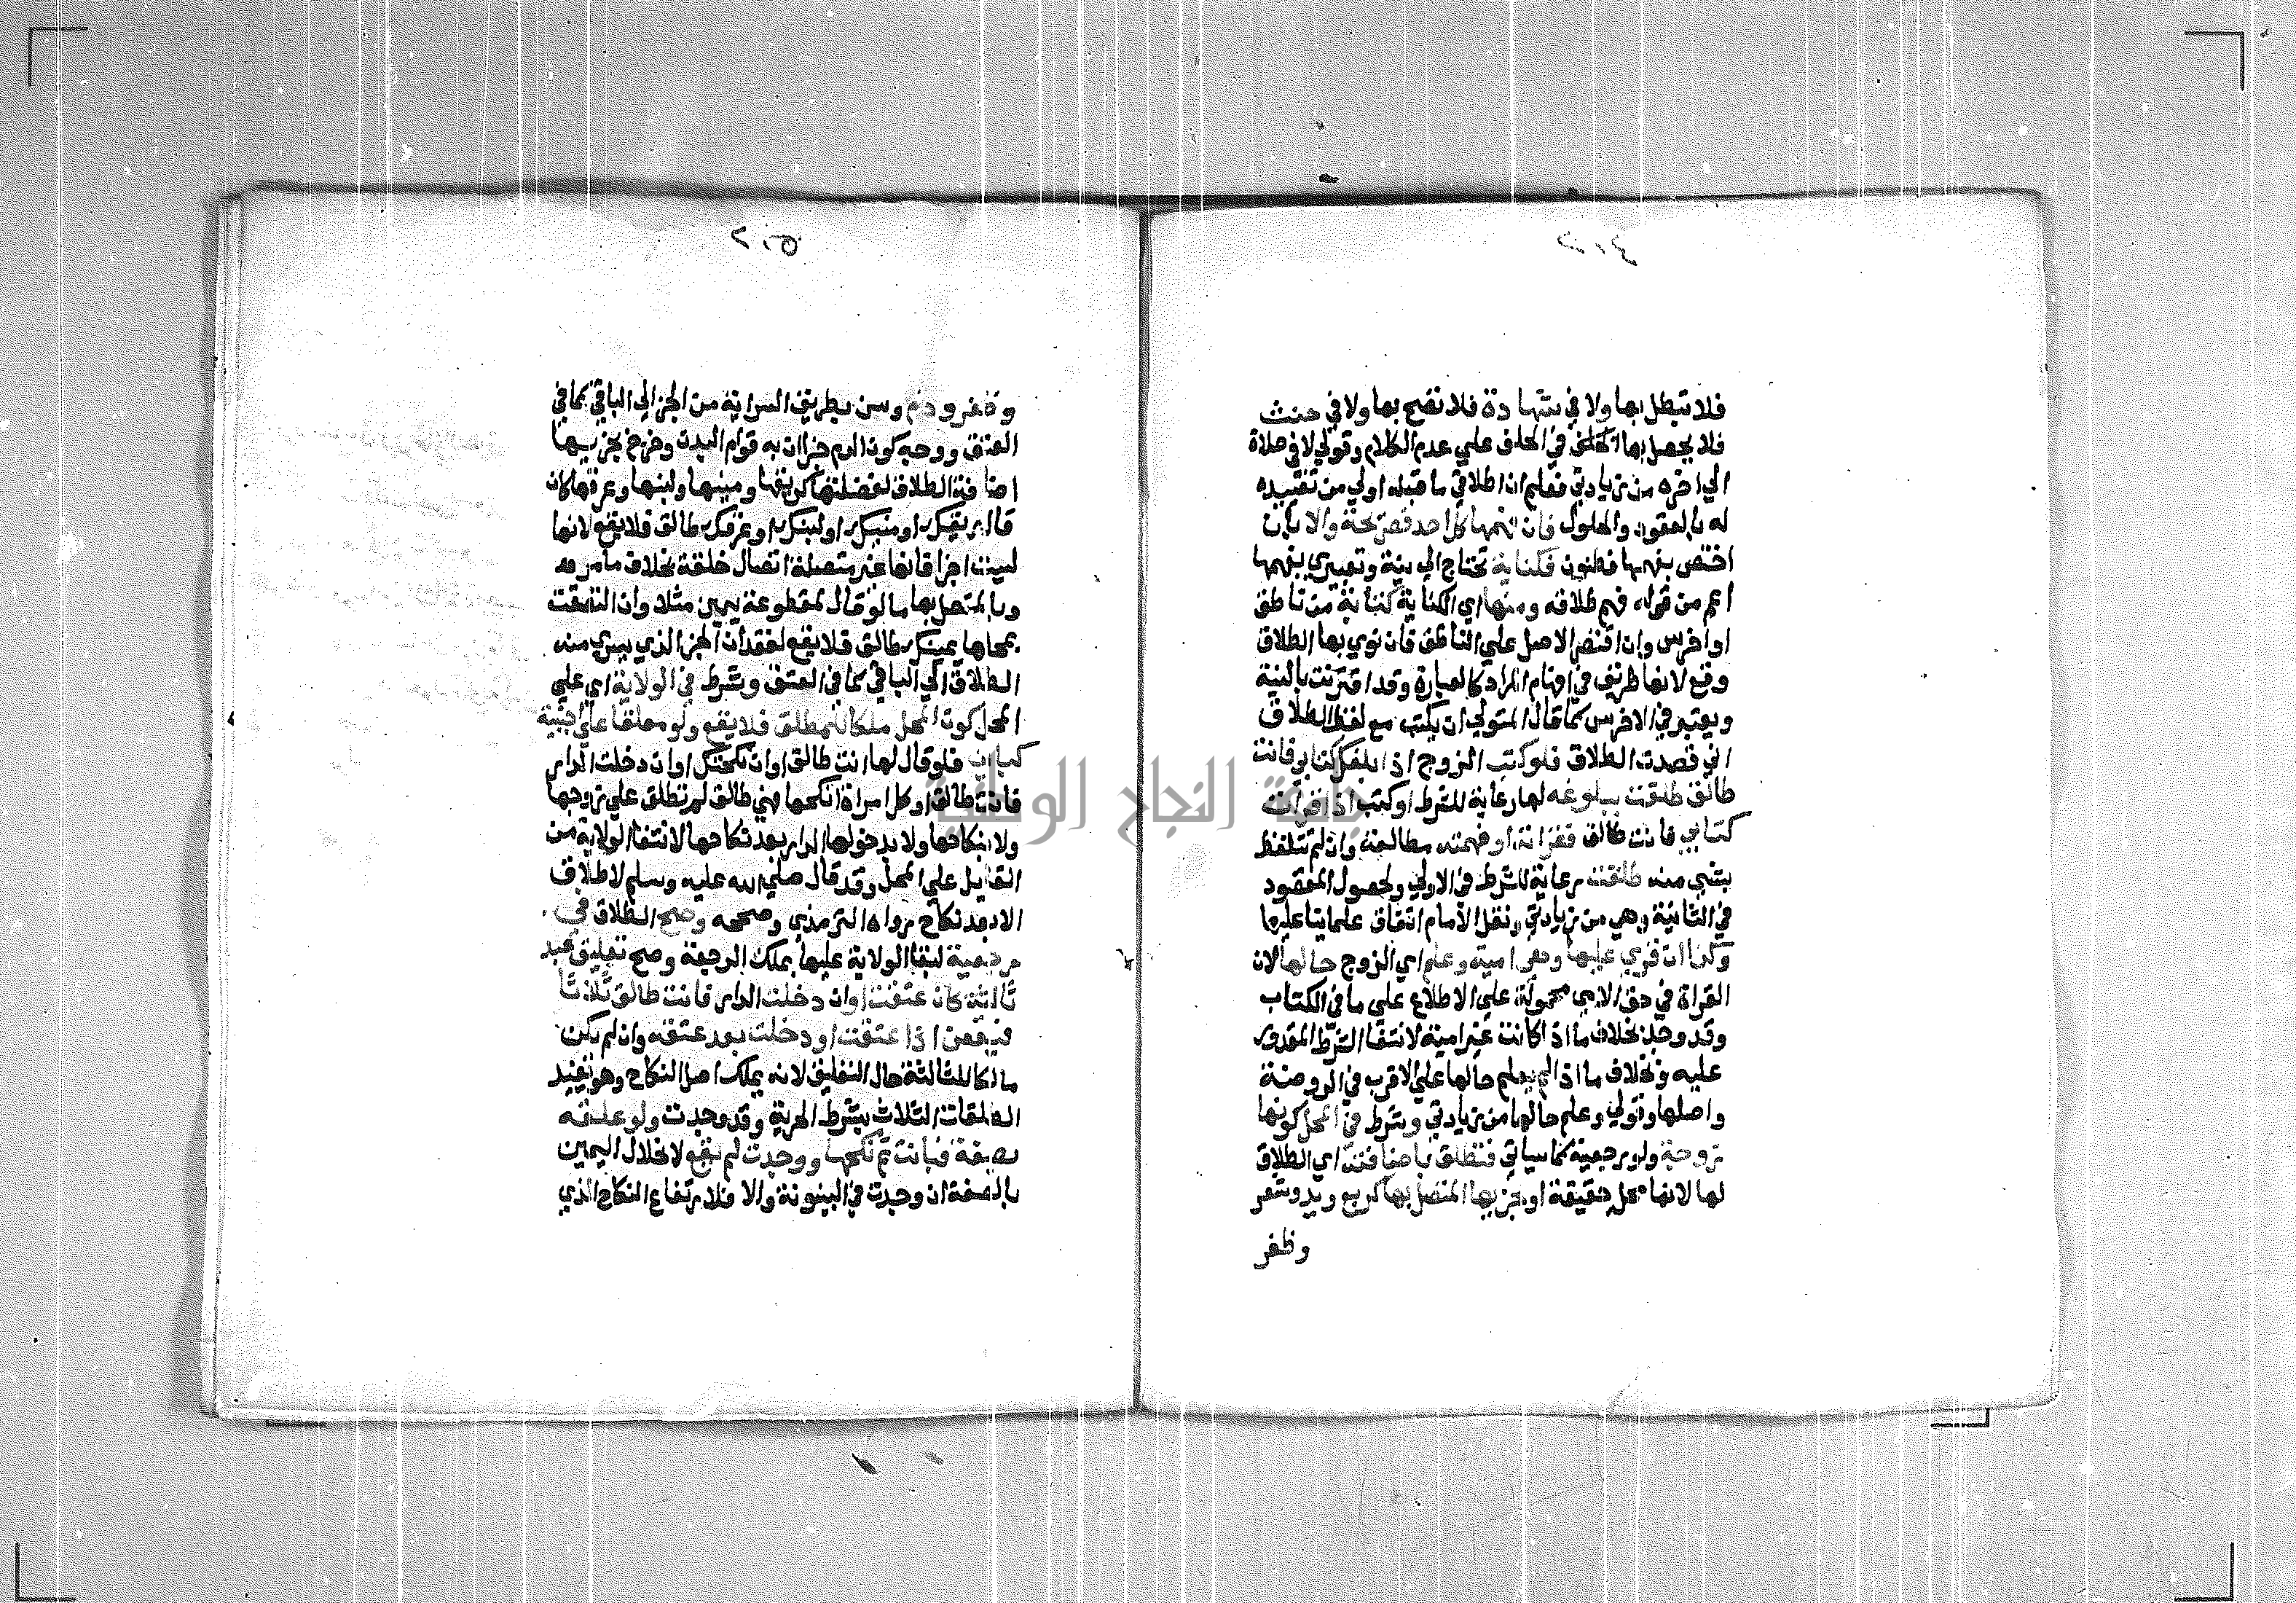 فلا تبطل بها ولا في شهادة فلا تصح بها ولا في حنث
فلا يحصل بها الحلف في الحلف علي عدم الكلام وقولي لا في صلاة
الي اخره من زيادتي فعلم ان اطلاقي ما قبله اولي من تقييده
له بالعقود والحلول فان فهمها كل احد فصريحة والا بان
اختص بفهمها فطنون فكناية تحتاج الي نية وتعبيري بفهمها
اعم من قوله فهم طلاقه ومنها اي الكناية كتابة من ناطق
او اخرس وان اقتصر الاصل علي الناطق فان نوي بها الطلاق
وقع لانها طريق في افهام المراد كالعبارة وقد اقترنت بالنية
ويعتبر في الاخرس كما قال المتولي ان يكتب مع لفظ الطلاق
اني قصدت الطلاق فلو كتب الزوج اذا بلغك كتابي فانت
طالق طلقت ببلوغه لها رعاية للشرط او كتب اذا قرات
كتابي فانت طالق فقراته او فهمته مطالعة وان لم تتلفظ
بشي منه طلقت رعاية للشرط في الاولي ولحصول المقصود
في الثانية وهي من زيادتي ونقل الامام اتفاق علمائنا عليها
وكذا ان قري عليها وهي امية وعلم اي الزوج حالها لان
القراة في حق الامي محمولة علي الاطلاع علي ما في الكتاب
وقد وجد بخلاف ما اذا كانت غير امية لانتفا الشرط المقدور
عليه وبخلاف ما اذا لم يعلم حالها علي الاقرب في الروضة
واصلها وقولي وعلم حالها من زيادتي وشرط في المحل كونها
زوجة ولو رجعية كما سياتي فتطلق باضافته اي الطلاق
لها لانها محل حقيقة او بجزيها المتصل بها كربع ويد وشعر
وظفر
وظفر ودم وسن بطريق السراية من الجز الي الباقي كما في
العتق ووجه كون الدم جزا ان به قوام البدن وخرج بجزيها
اضافة الطلاق لفضلتها كريقها ومنيها ولبنها وعرقها كان
قال ريقك او منيك او لبنك او عرقك طالق فلا يقع لانها
ليست اجزا فانها غير متصلة اتصال خلقة بخلاف ما مر
وبالمتصل بها ما لو قال لمقطوعة يمين مثلا وان التصقت
بمحلها يمينك طالق فلا يقع لفقدان الجز الذي يسري منه
الطلاق الي الباقي كما في العتق وشرط في الولاية اي علي
المحل كون المحل ملكا للمطلق فلا يقع ولو معلقا علي اجنبية
كبائن فلو قال لها انت طالق او ان نكحتك او ان دخلت الدار
فانت طالق او كل امراة انكحها فهي طالق لم تطلق علي زوجها
ولا بنكاحها ولا بدخولها الدار بعد نكاحها لانتفا الولاية من
القايل علي المحل وقد قال صلي الله عليه وسلم لا طلاق
الا بعد نكاح رواه الترمذي وصححه وصح الطلاق في
رجعية لبقا الولاية عليها بملك الرجعة وصح تعليق عبد
ثالثة كان عتقت او ان دخلت الدار فانت طالق ثلاثا
فيقعن اذا عتقت او دخلت بعد عتقه وان لم يكن
مالكا للثالثة حال التعليق لانه يملك اصل النكاح وهو يفيد
الطلقات الثلاث بشرط الحرية وقد وجدت ولو علقه
بصفة فبانت ثم نكحها ووجدت لم يقع لانحلال اليمين
بالصفة ان وجدت في البينونة والا فلارتفاع النكاح الذي
جامعة النجاح الوطنية